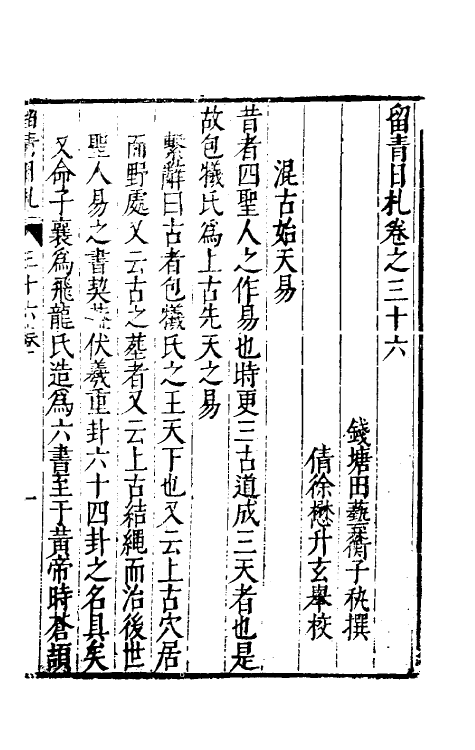 留青日札卷之三十六
錢塘田藝蘅子秇撰
倩徐懋升玄舉校
混古始天易
昔者四聖人之作易也時更三古道成三天者也是
故包犧氏為上古先天之易
繫辭曰古者包犧氏之王天下也又云上古穴居
而野處又云古之塟者又云上古結繩而治後世
聖人易之書契葢伏羲重卦六十四卦之名具矣
又命子襄為飛龍氏造為六書至于黄帝時蒼頡
留青日札 三十六卷 一